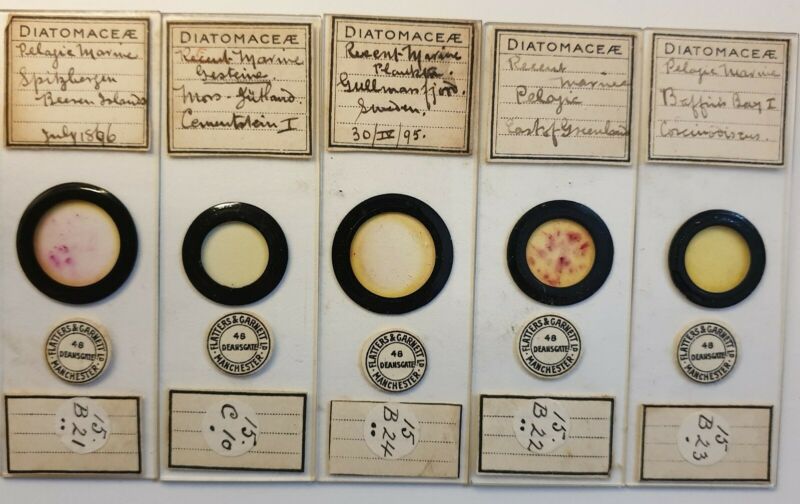 DIATOMACEÆ
Pelagic Marine
Spitzbergen
Beeren Islands
July 1866
FLATTERS & GARNETT LD
48
DEANSGATE
MANCHESTER
15.
B 21
DIATOMACEÆ
Recent Marine
Gesteine
Mors-Jütland.
Cementstein I
FLATTERS & GARNETT LD
48
DEANSGATE
MANCHESTER
15
C 10
DIATOMACEÆ
Recent Marine
Plankton.
Gullmarsfjord.
Sweden.
30/IV/95.
FLATTERS & GARNETT LD
48
DEANSGATE
MANCHESTER
15
B 24
DIATOMACEÆ
Recent
Marine
Pelagic
East of Greenland
FLATTERS & GARNETT LD
48
DEANSGATE
MANCHESTER
15.
B 22
DIATOMACEÆ
Pelagic Marine
Baffins Bay I
Coscinodiscus.
FLATTERS & GARNETT LD
48
DEANSGATE
MANCHESTER
15
B 23